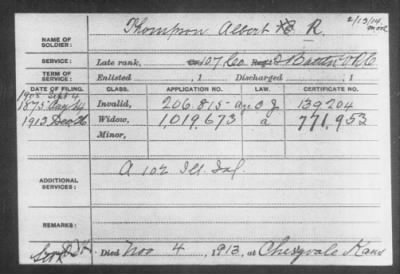 NAME OF SOLDIER: Thompson Albert R.
SERVICE: Late rank, 107 Co. Regt. 2 Battn V R C
TERM OF SERVICE: Enlisted , 1 Discharged , 1
DATE OF FILING. CLASS. APPLICATION NO. LAW. CERTIFICATE NO.
1875 Invalid, 206.815 139204
1913 Widow, 1,019,673 a 771,953
Minor,
ADDITIONAL SERVICES: A 102 Ill. Inf.
REMARKS:
Died Nov 4 , 1913, at Kans